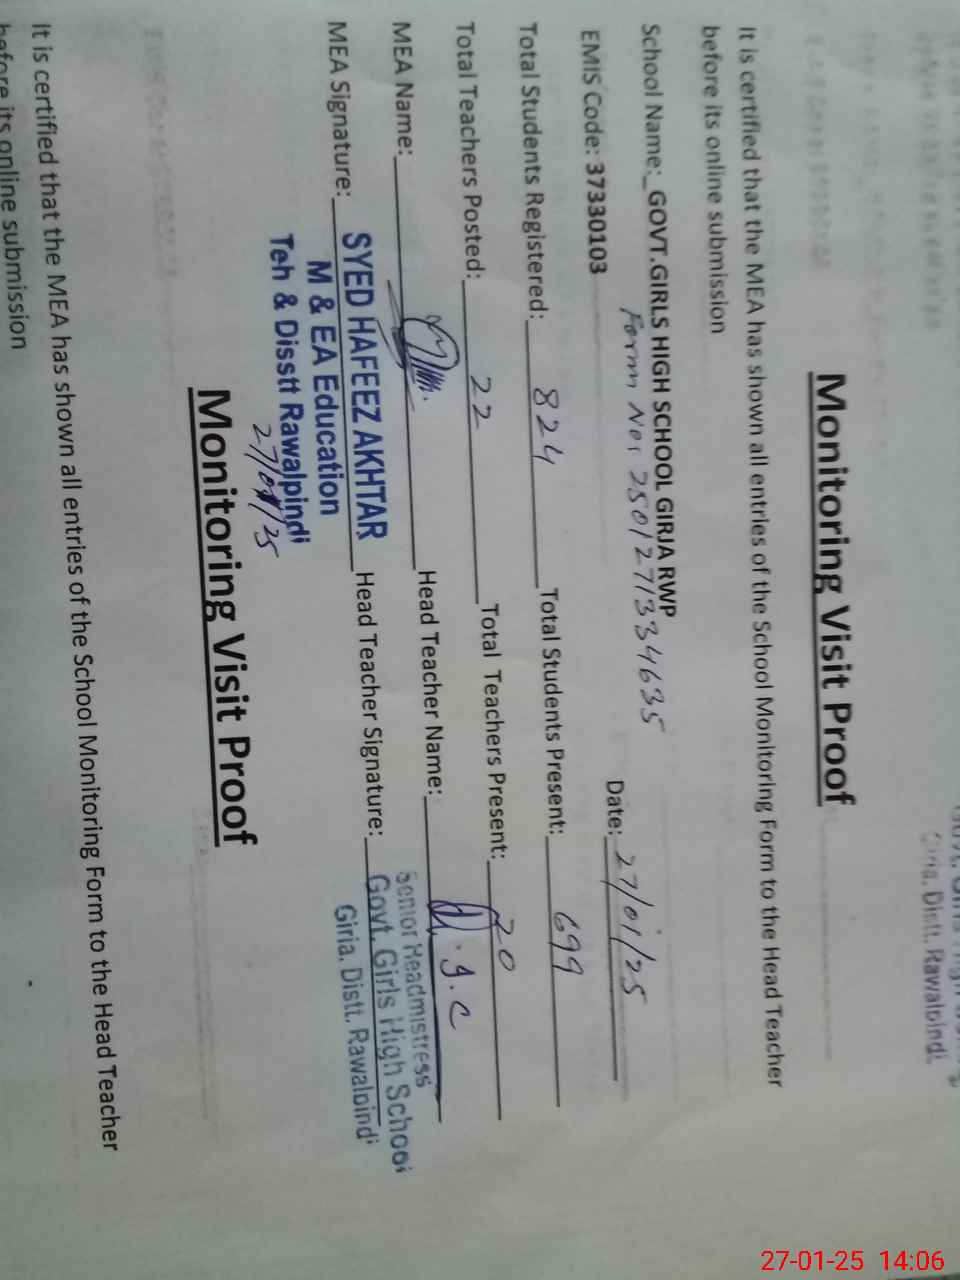 Govt. Girls High School
Girja, Distt. Rawalpindi.
Monitoring Visit Proof
It is certified that the MEA has shown all entries of the School Monitoring Form to the Head Teacher
before its online submission
School Name:_GOVT.GIRLS HIGH SCHOOL GIRJA RWP
Form No: 2501271334635
EMIS Code: 37330103 Date: 27/01/25
Total Students Registered: 824 Total Students Present: 699
Total Teachers Posted: 22 Total Teachers Present: 20
MEA Name: Head Teacher Name: I.C
MEA Signature: Head Teacher Signature:
SYED HAFEEZ AKHTAR
M & EA Education
Teh & Disstt Rawalpindi
27/01/25
Senior Headmistress
Govt. Girls High School
Girja, Distt. Rawalpindi
Monitoring Visit Proof
It is certified that the MEA has shown all entries of the School Monitoring Form to the Head Teacher
before its online submission
27-01-25 14:06